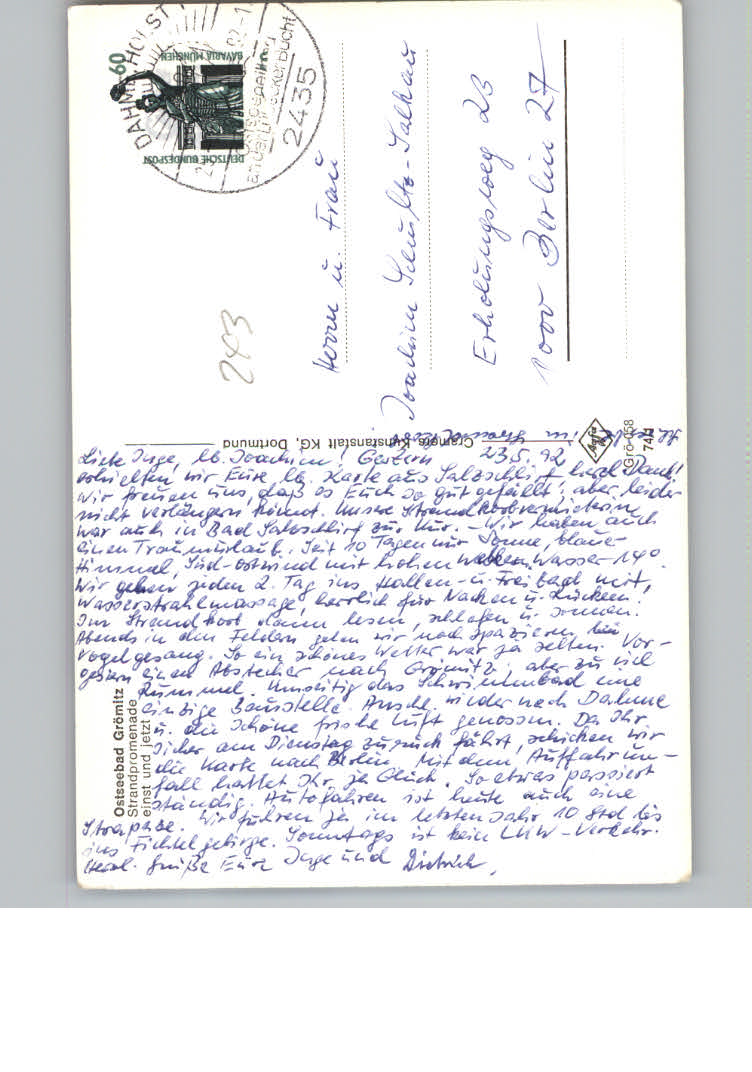 DAHME, HOLST
2435
an der Lübecker Bucht
60
BAVARIA MÜNCHEN
DEUTSCHE BUNDESPOST
243
Herrn u. Frau
Joachim Schultz-Salkau
Erholungsweg 23
1000 Berlin 27
Cramers Kunstanstalt KG, Dortmund
Grö 058
74/1
Ostseebad Grömitz
Strandpromenade
einst und jetzt
23.5.92
Liebe Inge, lb. Joachim! Gestern
erhielten wir Eure lb. Karte aus Salzschlirf herzl. Dank!
Wir freuen uns, daß es Euch so gut gefällt, aber leider
nicht verlängern könnt. Unsere Strandkorbvermieterin
war auch in Bad Salzschlirf zur Kur. - Wir haben auch
einen Traumurlaub. Seit 10 Tagen nur Sonne, blauer
Himmel, Süd-ostwind mit hohen Wellen, Wasser 14°.
Wir gehen jeden 2. Tag ins Hallen- u. Freibad mit,
Wasserstrahlmassage, herrlich für Nacken u. Rücken.
Im Strandkorb dann lesen, schlafen u. sonnen.
Abends in den Feldern gehen wir noch spazieren,
Vogelgesang. So ein schönes Wetter war ja selten. Vor-
gestern einen Abstecher nach Grömitz, aber zu viel
Rummel. Umseitig das Schwimmbad eine
einzige Baustelle. Anschl. wieder nach Dahme
u. die schöne frische Luft genossen. Da Ihr
sicher am Dienstag zurück fährt, schicken wir
die Karte nach Berlin. Mit dem Auffahrun-
fall hattet Ihr ja Glück. So etwas passiert
ständig. Autofahren ist heute auch eine
Strapaze. Wir fuhren ja im letzten Jahr 10 Std bis
ins Fichtelgebirge. Sonntags ist kein LKW-Verkehr.
Herzl. Grüße Eure Inge und Dietrich.